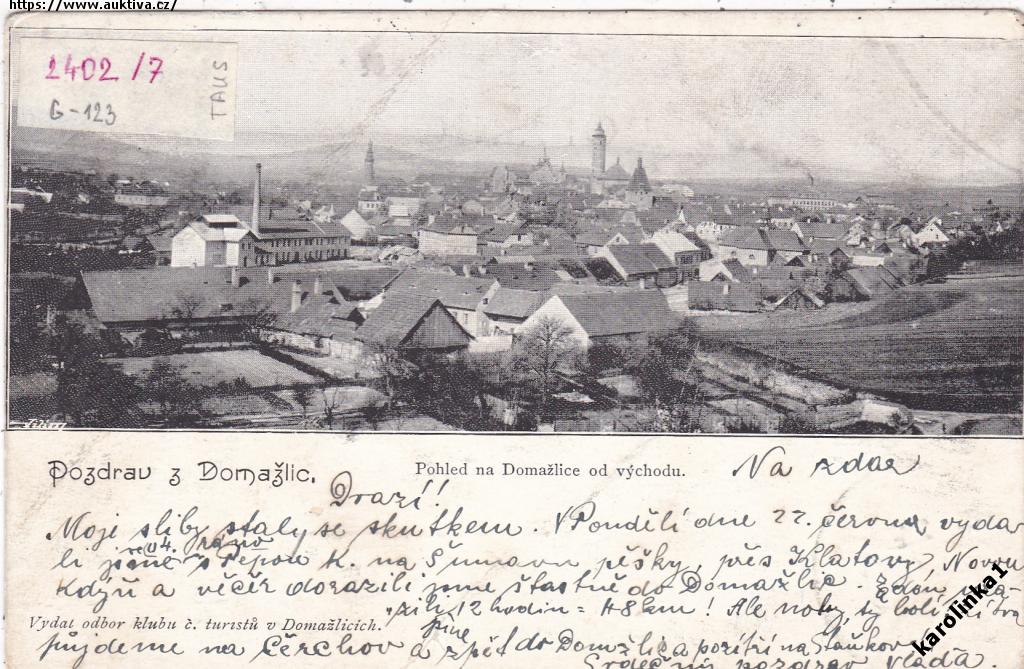 https://www.auktiva.cz/
2402/7
G-123
TAUS
Pozdrav z Domažlic.
Pohled na Domažlice od východu.
Na zdar
Drazí!
Moje sliby staly se skutkem. V Pondělí dne 22. června vyda-
li jsme se v 4. ráno s Pepou K. na Šumavu pěšky, přes Klatovy, Novou
Kdyň a večer dorazili jsme šťastně do Domažlic.
12 hodin = 48 km! Ale nohy ty bolí
Vydal odbor klubu č. turistů v Domažlicích.
půjdeme na Čerchov a zpět do Domažlic a pozítří na Staňkov
Srdečný pozdrav Vláďa.
karolinka1